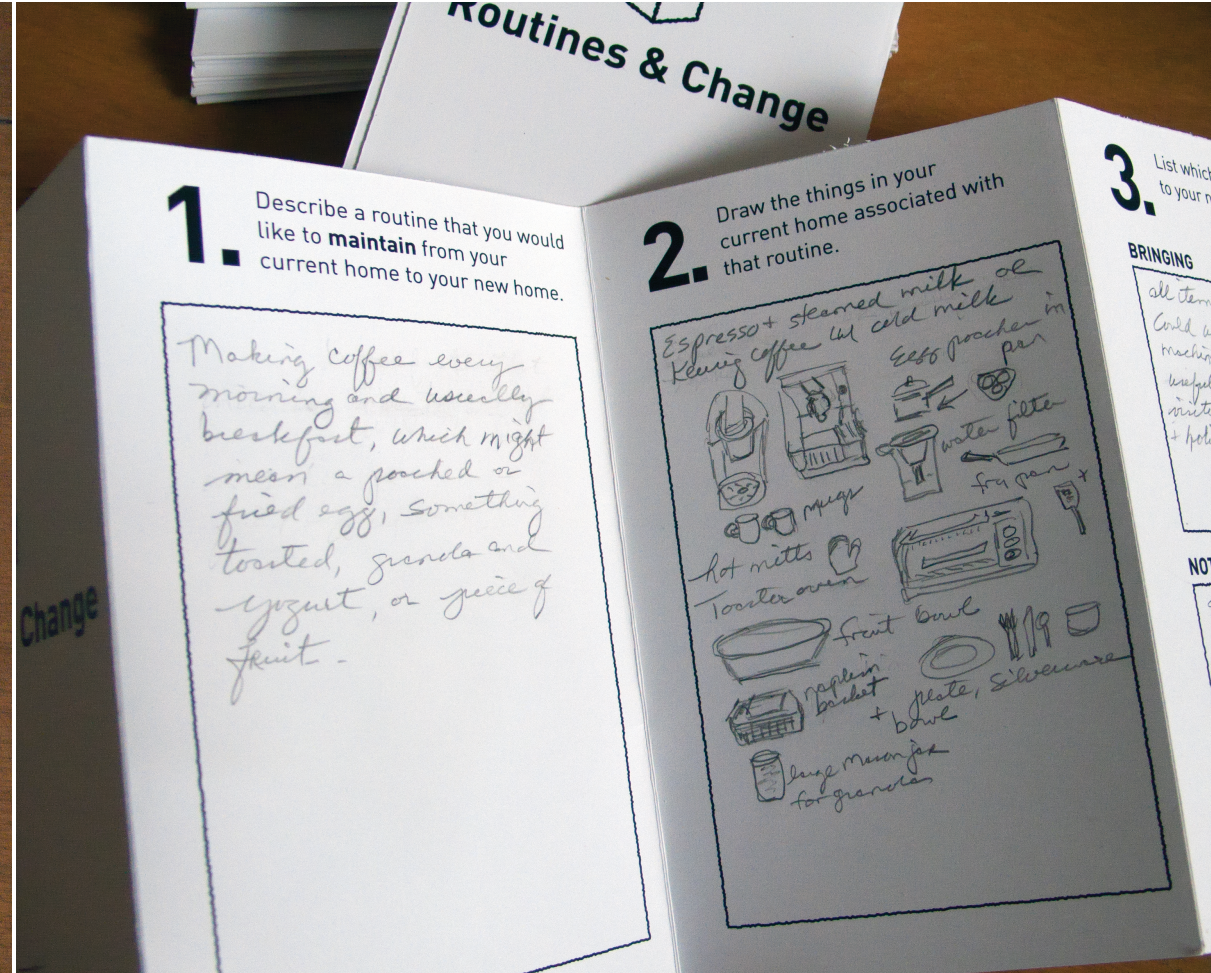 Routines & Change
1.
Describe a routine that you would
like to maintain from your
current home to your new home.
Making coffee every
morning and usually
breakfast, which might
mean a poached or
fried egg, something
toasted, granola and
yogurt, or piece of
fruit.
2.
Draw the things in your
current home associated with
that routine.
Espresso + steamed milk or
Keurig coffee w/ cold milk
egg poacher in
pan
water filter
fry pan +
mugs
hot mitts
Toaster oven
fruit bowl
napkin
basket
plate, silverware
+ bowl
large Mason jar
for granola
3.
List which
to your n
BRINGING
all item
Could u
machin
useful
visito
NOT
Change